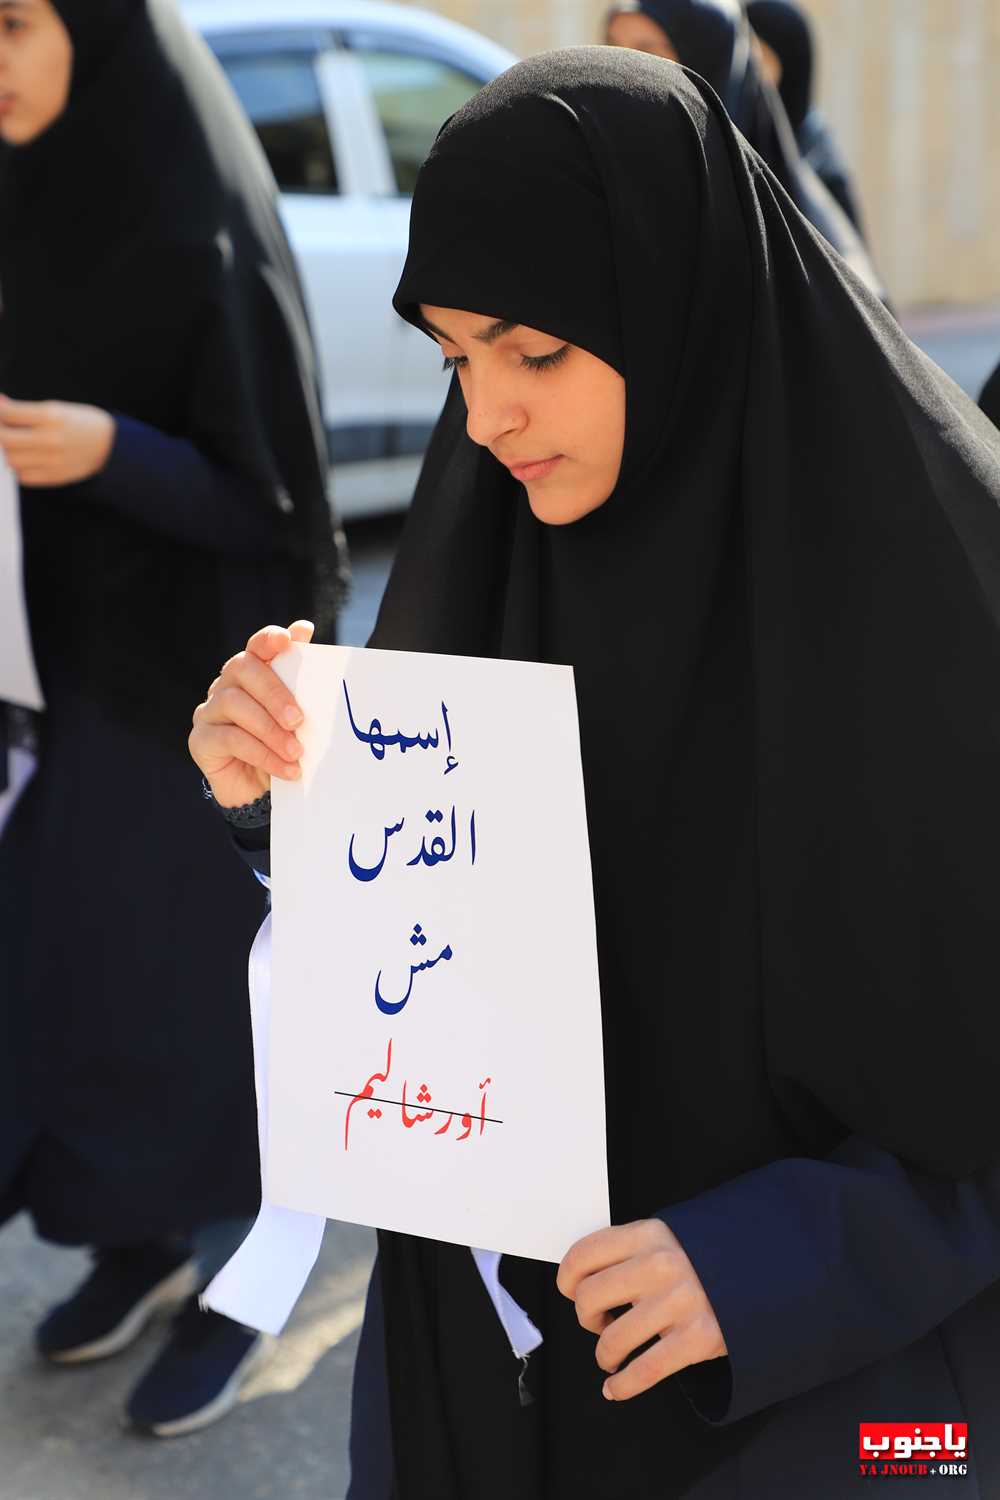 إسمها
القدس
مش
أورشاليم
ياجنوب
YA JNOUB + ORG